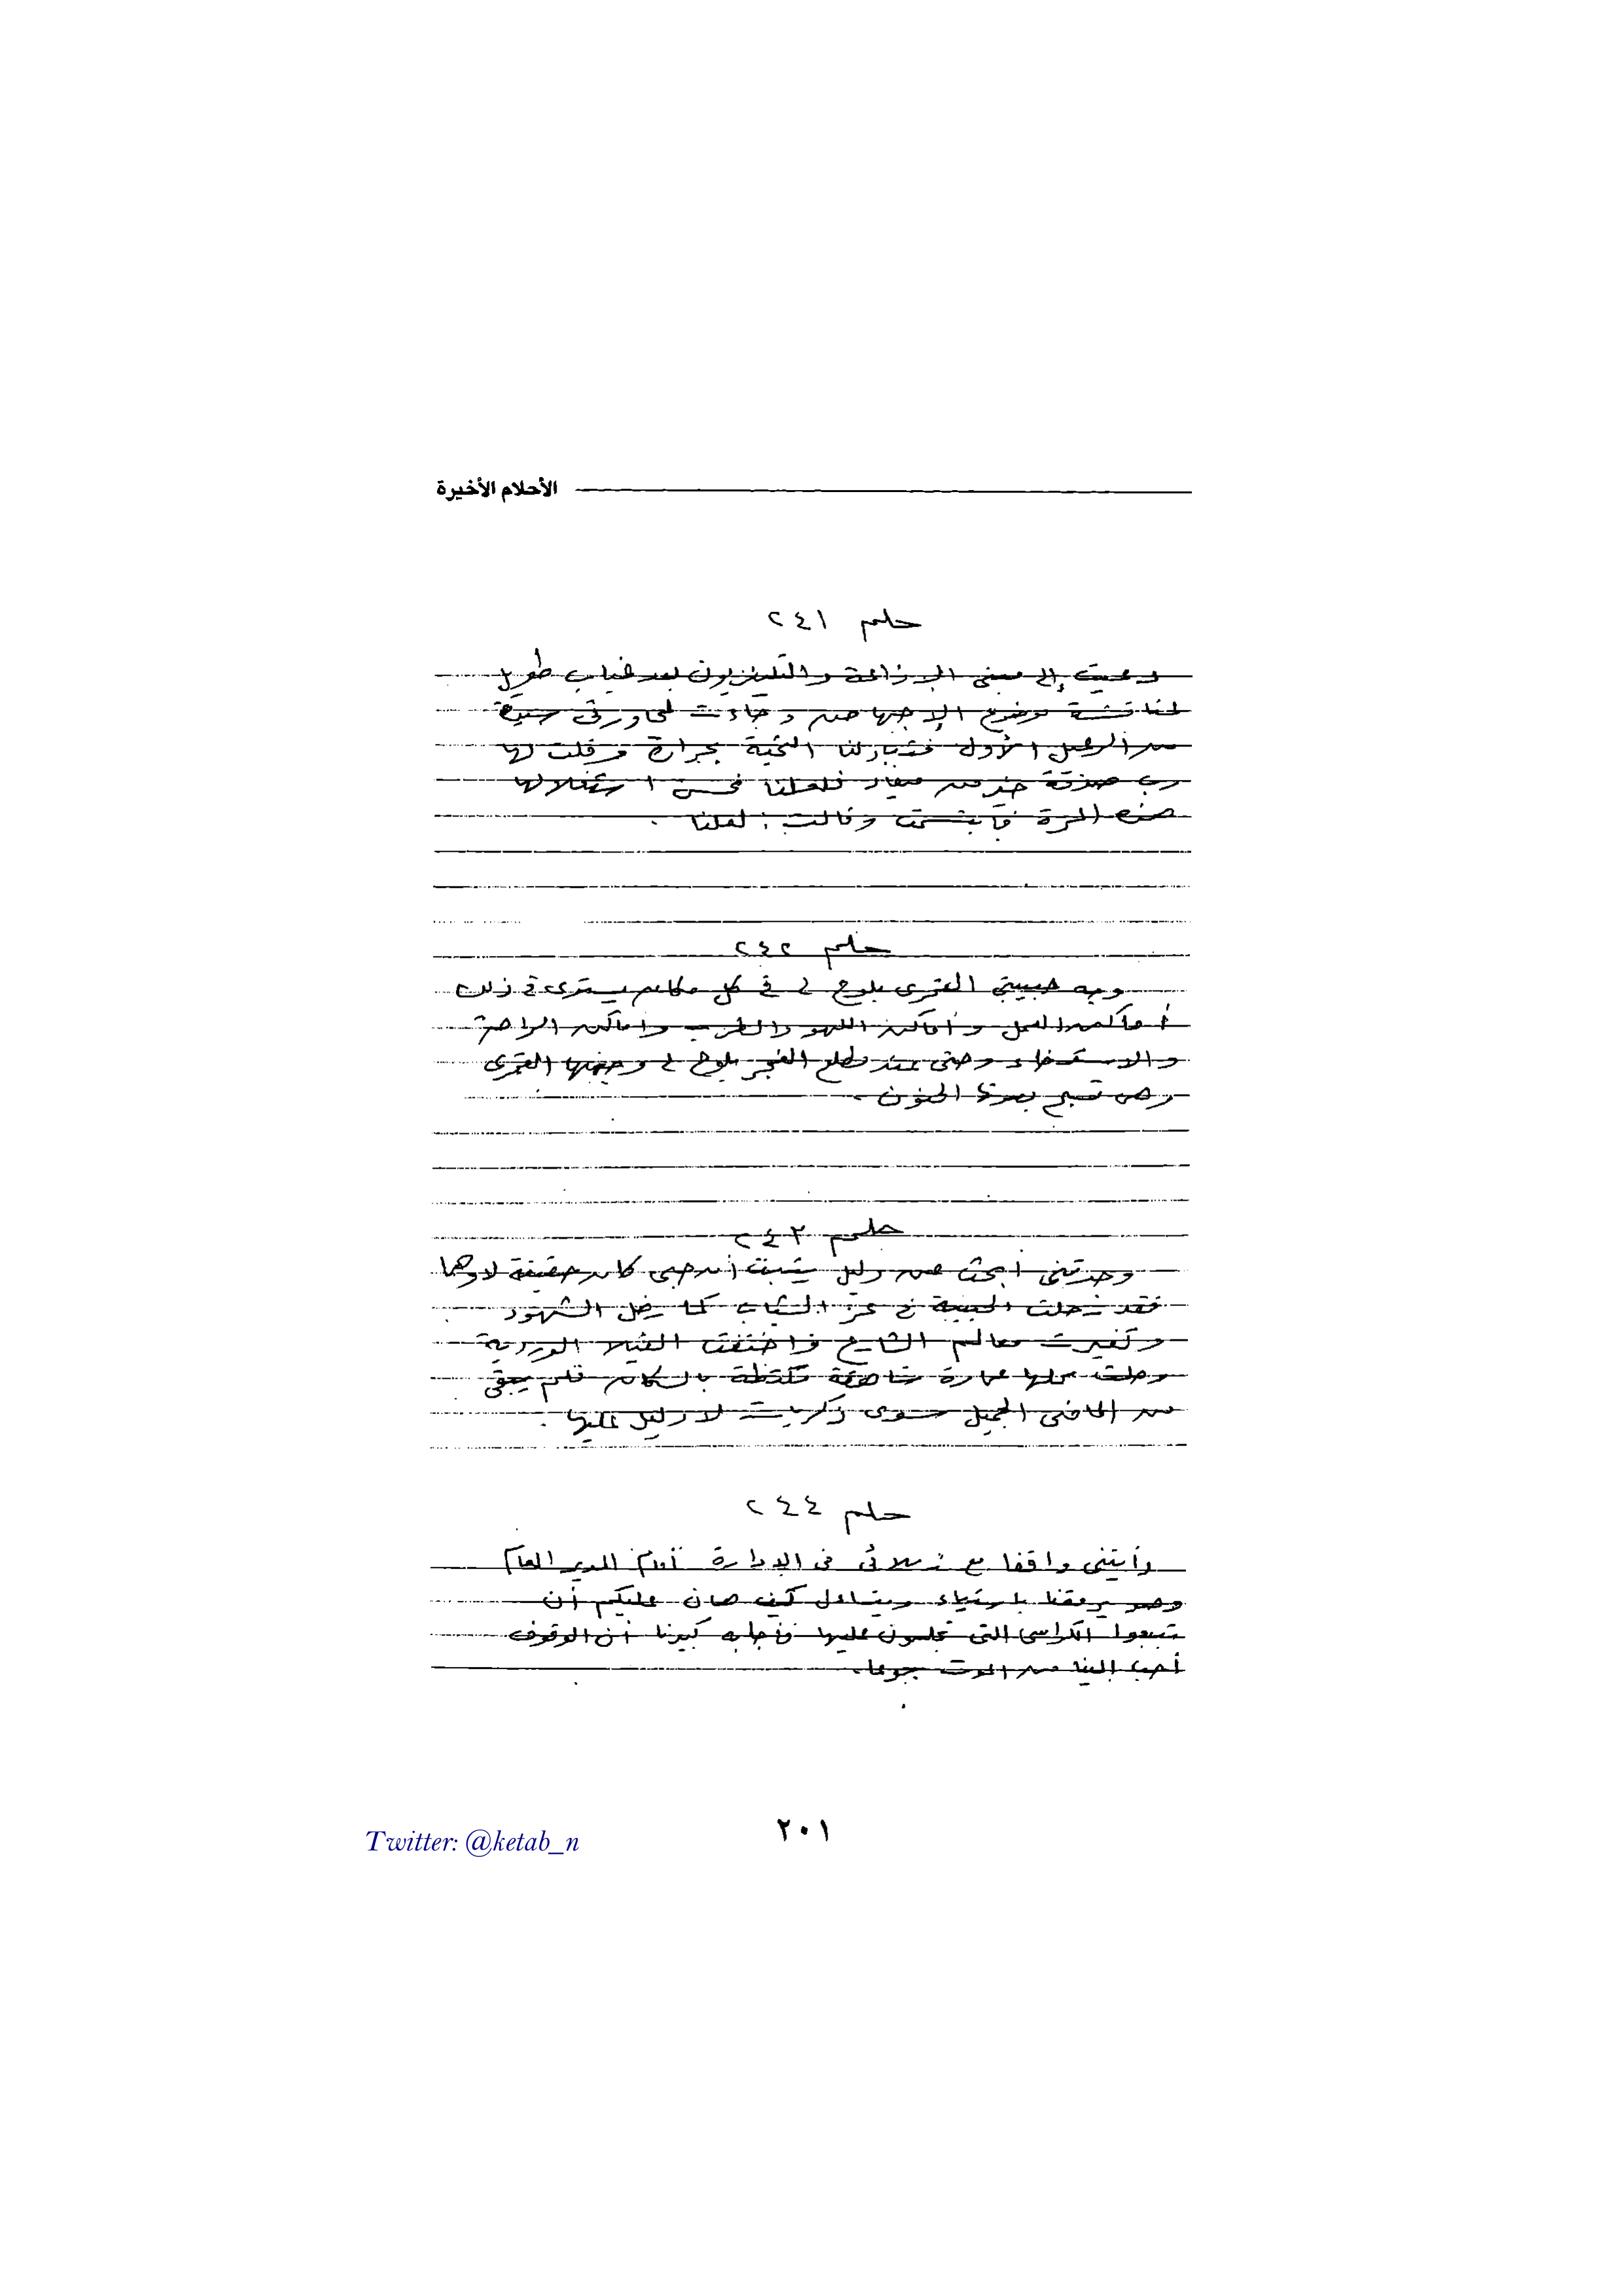 الأحلام الأخيرة
حلم ٢٤١
دعيت إلى مبنى الإذاعة والتليفزيون بعد غياب طويل
لمناقشة موضوع الإجهاض وجاءت لمحاورتى سيدة
من الرعيل الأول فتبادلنا التحية بحرارة وقلت لها
رب صدفة خير من ميعاد فلعلنا نحسن استغلالها
هذه المرة فابتسمت وقالت: لعلنا.
حلم ٢٤٢
وجه حبيبتى القمرى يلوح لى فى كل مكان يستوى فى ذلك
أماكن العمل وأماكن اللهو والطرب وأماكن الراحة
والاسترخاء وحتى عند مطلع الفجر يلوح لى وجهها القمرى
وهى تسبح بصوتها الحنون.
حلم ٢٤٣
وجدتنى أبحث عن دليل يثبت أن حبى كان حقيقة لا وهما
فقد رحلت الحبيبة فى عز الشباب كما رحل الشهود
وتغيرت معالم الشارع واختفت الفيلا الوردية
وحلت محلها عمارة شاهقة مكتظة بالسكان فلم يبق
من الماضى الجميل سوى ذكريات لا دليل عليها.
حلم ٢٤٤
رأيتنى واقفا مع زملائى فى الإدارة أمام المدير العام
وهو يرمقنا باستياء ويتساءل كيف هان عليكم أن
تبيعوا الكراسى التى تجلسون عليها فأجابه كبيرنا أن الوقوف
أحب إلينا من الموت جوعا.
٢٠١
Twitter: @ketab_n